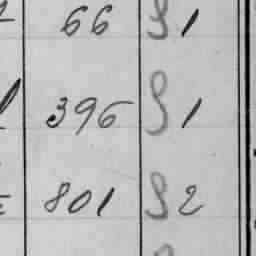 66 S 1
396 S 1
801 S 2